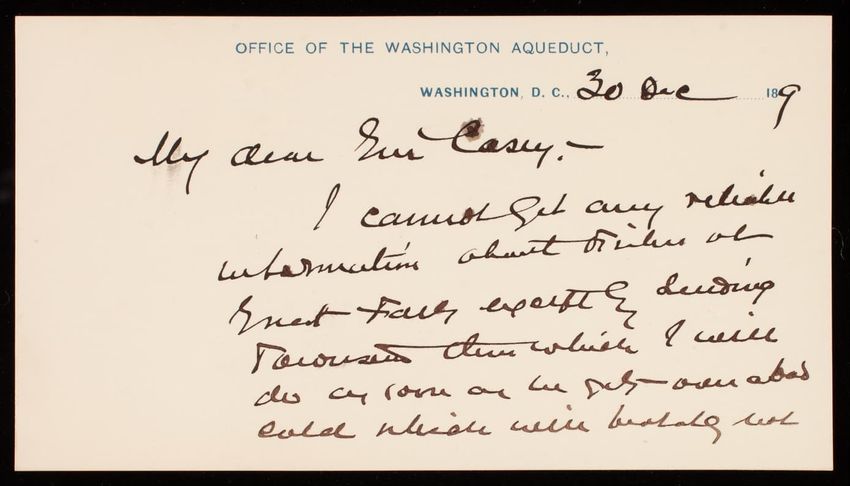 OFFICE OF THE WASHINGTON AQUEDUCT,
WASHINGTON, D. C., 30 Dec 189
My dear Genl Casey,—
I cannot get any reliable
information about at
Great Falls except by sending
Townsend there which I will
do as soon as he gets over a bad
cold which will probably not